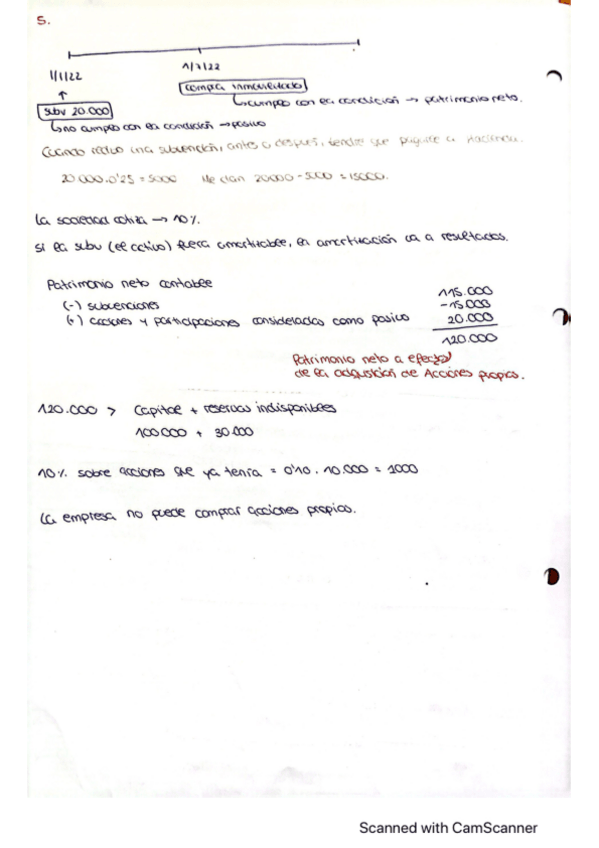 5.
1/1/22
1/7/22
compra inmovilizado
↳ cumples con la condición → patrimonio neto.
subv 20.000
↳ no cumples con la condición → pasivo
Cuando recibo una subvención, antes o después, tendré que pagarle a Hacienda.
20.000 . 0'25 = 5000 Me dan 20000 - 5000 = 15000.
La sociedad cotiza → 10%.
si la subv (el activo) fuera amortizable, la amortización va a resultados.
Patrimonio neto contable 115.000
(-) subvenciones -15.000
(+) acciones y participaciones consideradas como pasivo 20.000
120.000
Patrimonio neto a efectos
de la adquisición de Acciones propias.
120.000 > Capital + reservas indisponibles
100.000 + 30.000
10% sobre acciones que ya tenía = 0'10 . 10.000 = 1000
La empresa no puede comprar acciones propias.
Scanned with CamScanner